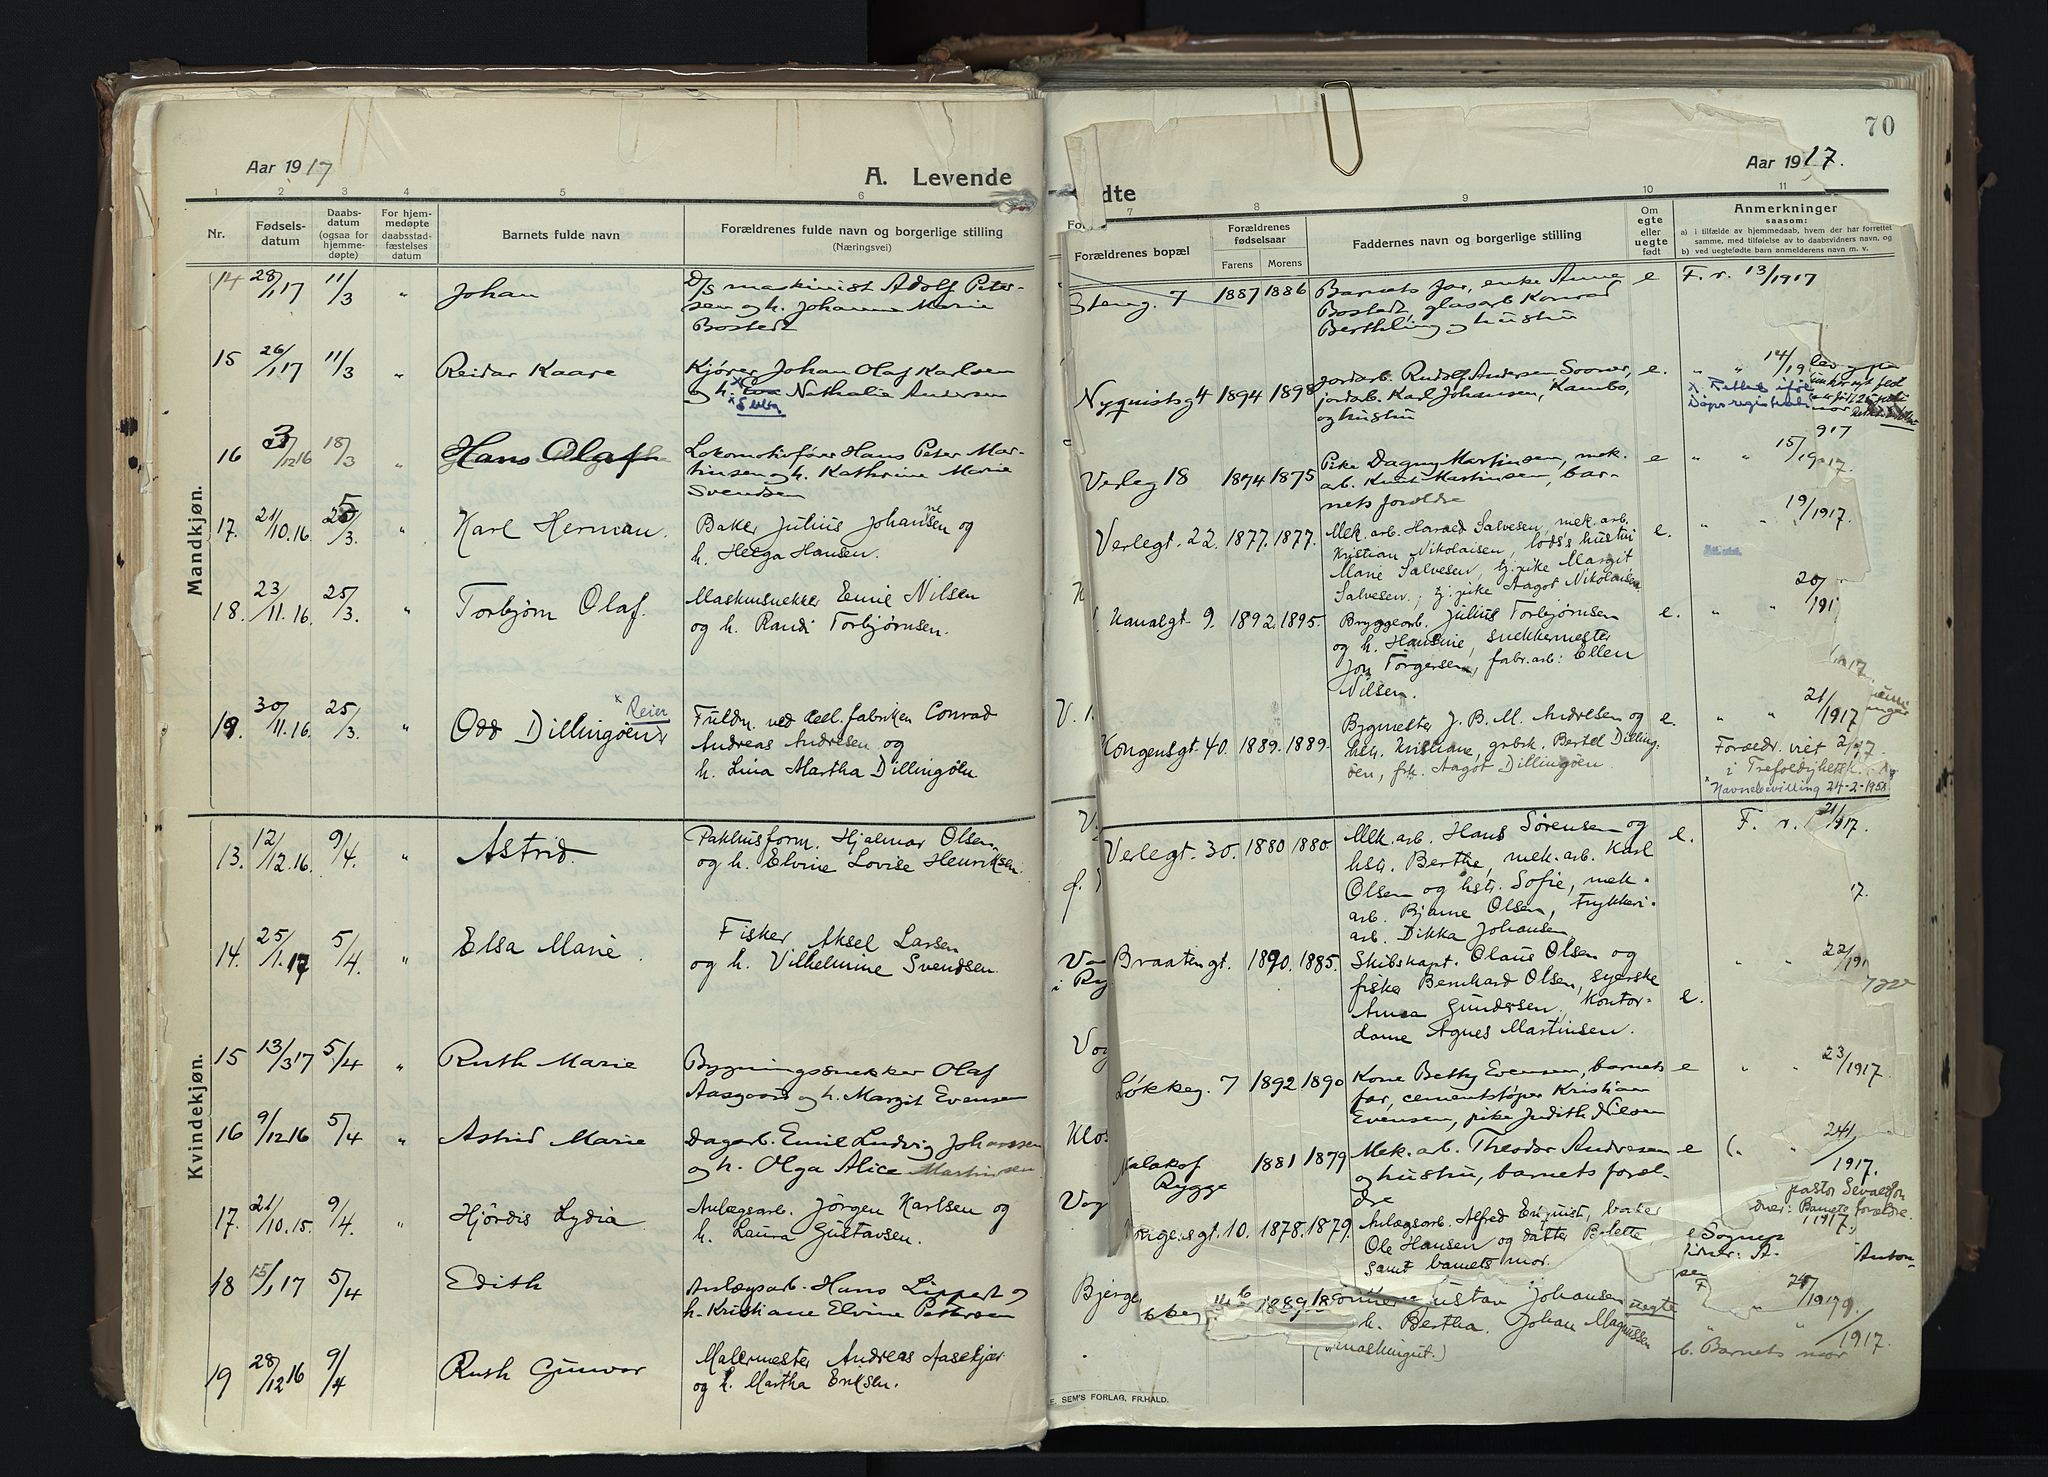 Aar 1917
A. Levende
1 2 3 4 5 6
Nr.
Fødsels-
datum
Daabs-
datum
(ogsaa for
hjemme-
døpte)
For hjem-
medøpte
daabsstad-
fæstelses
datum
Barnets fulde navn
Forældrenes fulde navn og borgerlige stilling
(Næringsvei)
Mandkjøn.
14 28/1 17 11/3 " Johan
D/S maskinist Adolf Peter-
sen og h. Johanne Marie
Bostedt
15 26/1 17 11/3 " Reidar Kaare
Kjører Johan Olaf Karlsen
og h. Eva Nathalie Andersen
16 3/12 16 18/3 " Hans Olaf
Lokomotivfører Hans Peter Mar-
tinsen og h. Kathrine Marie
Svendsen
17. 21/10.16. 25/3. " Karl Herman.
Baker Julius Johannesen og
h. Helga Hansen.
18. 23/11.16. 25/3. " Torbjørn Olaf.
Maskinsnekker Emil Nilsen
og h. Randi Torbjørnsen.
19. 30/11.16. 25/3. " Odd Dillingøen
x Reier
Fuldm. ved cell. fabriken Conrad
Andreas Andresen og
h. Lina Martha Dillingøen
Kvindekjøn.
13. 12/12.16. 9/4. " Astrid.
Pakhusform. Hjalmar Olsen
og h. Elvine Lovise Henriksen.
14. 25/1.17 5/4. " Elsa Marie.
Fisker Aksel Larsen
og h. Vilhelmine Svendsen.
15 13/3 17 5/4 " Ruth Marie
Bygningssnekker Olaf
Aasgaard og h. Margit Evensen
16 9/12 16 5/4 " Astrid Marie
Dagarb. Emil Ludvig Johanssen
og h. Olga Alice Martinsen
17. 21/10.15. 9/4. " Hjördis Lydia.
Anlægsarb. Jørgen Karlsen og
h. Laura Gustavsen.
18 15/1 17 5/4 Edith
Anlægsarb. Hans Lippert og
h. Kristiane Elvine Pettersen
19 28/12 16 9/4 Ruth Gunvor
Malermester Andreas Aasekjær
og h. Martha Eriksen.
70
Aar 1917.
dte
7 8 9 10 11
Forældrenes bopæl
Forældrenes
fødselsaar
Farens Morens
Faddernes navn og borgerlige stilling
Om
egte
eller
uegte
født
Anmerkninger
saasom:
a) i tilfælde av hjemmedaab, hvem der har forrettet
samme, med tilføielse av to daabsvidners navn, og
b) ved uegtefødte barn anmelderens navn m. v.
Steng. 7 1887 1886
Barnets far, enke Anne
Bostedt, glasarb Konrad
Berthling og hustru
e F. r. 13/1917
Nyquistsg 4 1894 1898
Jordarb. Rudolf Andersen Sooner,
jordarb. Karl Johansen, Kambo,
og hustru
e. " " 14/19
x. Rettet iflg.
Døpsregistret
Verleg 18 1874 1875
Pike Dagny Martinsen, mek.
arb. Knut Martinsen, bar-
nets forældre
e " " 15/1917.
Verlegt. 22. 1877. 1877.
Mek. arb. Harald Salvesen, mek. arb.
Kristian Nikolaisen, lods's hustru
Marie Salvesen, tj. pike Margit
Salvesen, tj. pike Aagot Nikolaisen
e. " " 19/1917.
Kanalgt. 9. 1892. 1895.
Bryggearb. Julius Torbjørnsen
og h. Hansine, snekkermester
Jon Torgersen, fabr.arb: Ellen
Nilsen.
e. " " 20/191
Kongensgt. 40. 1889. 1889.
Bygmester J. B. M. Andresen og
hstr. Kristiane, grbsk. Bertel Dilling-
öen, frk. Aagot Dillingöen.
e. " " 21/1917
Forældr. viet 2/
i Trefoldighetsk.
x Navnebevilling 24-2-1958
Verlegt. 30. 1880 1880
Mek. arb. Hans Sørensen og
hstr. Berthe, mek. arb. Karl
Olsen og hstr. Sofie, mek.
arb. Bjarne Olsen, trykkeri-
arb. Dikka Johansen
e. F. r. 21/1917.
Braatengt. 1890. 1885.
Skibskapt. Olaus Olsen og
fisker Bernhard Olsen, syerske
Anna Gundersen, kontor-
dame Agnes Martinsen.
e. " " 22/191
Løkkeg. 7 1892 1890
Kone Betty Evensen, barnets
far, cementstøper Kristian
Evensen, pike Judith Nilsen
e " " 23/1917.
Malakof
Rygge
1881 1879
Mek. arb. Theodor Andresen
og hustru, barnets foræl-
dre
e " 24/1917.
Kongensgt. 10. 1878. 1879.
Anlægsarb. Alfred Enquist, baker
Ole Hansen og datter Belette,
samt barnets mor.
e Sogne
pastor Sevaldson
1917.
Anton-
sen
Bjerge
1889
Gustav Johansen
h. Bertha. Johan Magnussen
uegte
F " 24/1917
/1917.
b. Barnets mor
E. SEM'S FORLAG, FR.HALD.